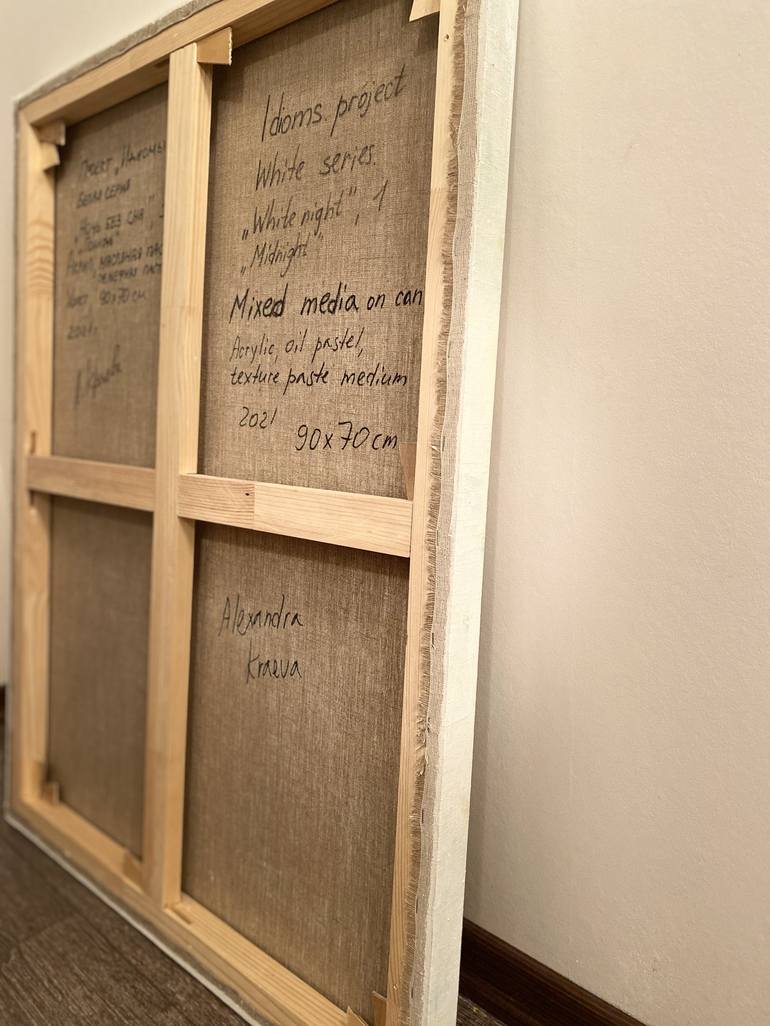 Проект „Идиомы
Белая серия
„Ночь БЕЗ СНА",
Акрил, МАСЛЯНАЯ ПАС
Холст 90х70 см
2021.
Idioms project
White series.
„White night", 1
„Midnight"
Mixed media on can
Acrylic, oil pastel,
texture paste medium
2021
90x70 cm
Alexandra
Kraeva